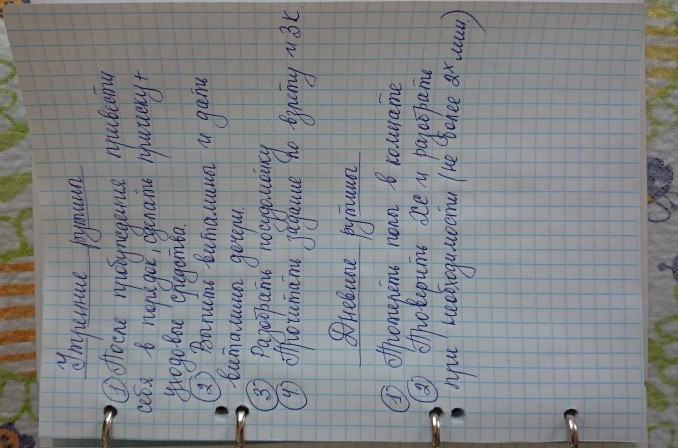 Утренние рутины
1 После пробуждения привести
себя в порядок, сделать причёску +
уходовые средства.
2 Выпить витамины и дать
витамины дочери.
3 Разобрать посудомойку
4 Прочитать задание по взлёту и ЗК.
Дневные рутины
1 Протереть полы в комнате
2 Проверить ХС и разобрать
при необходимости (не более 2х мин.)